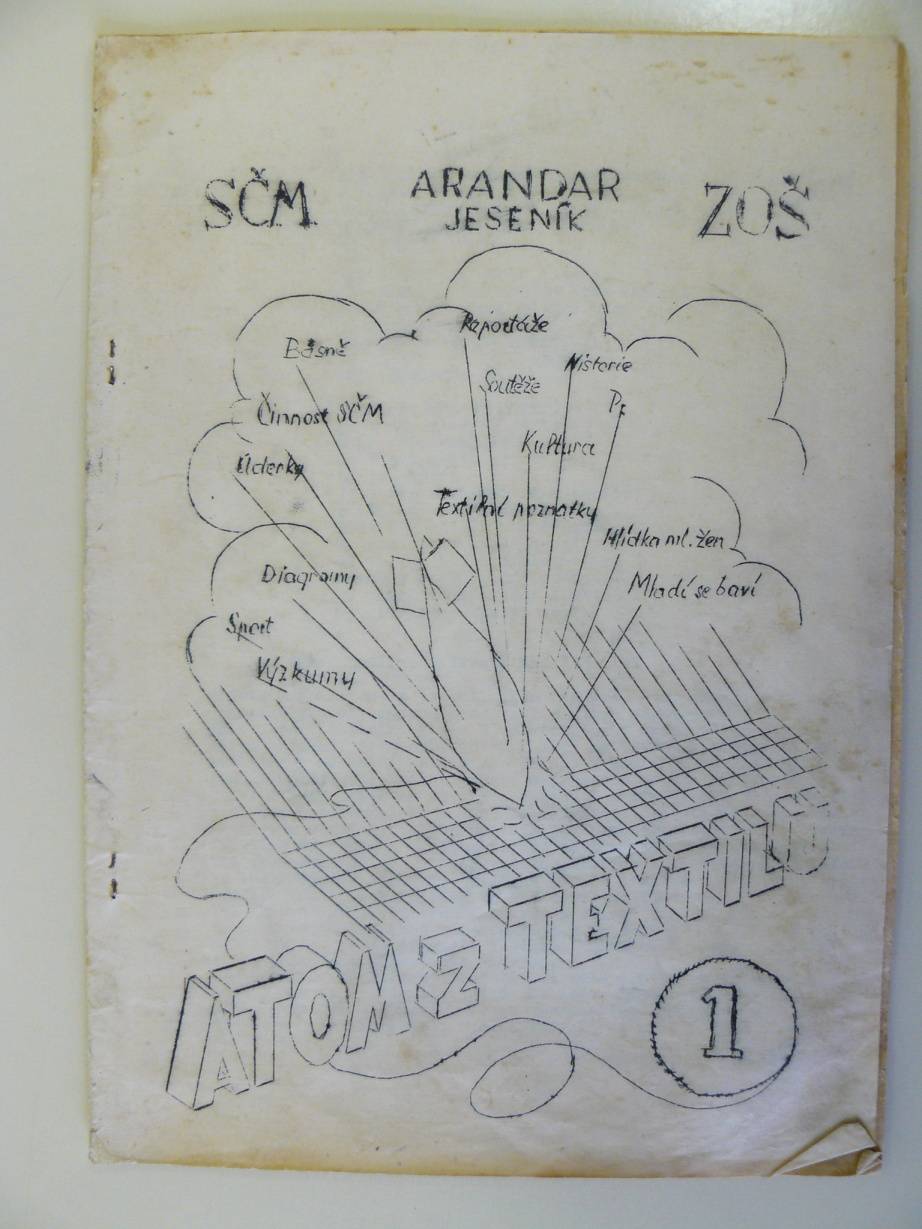 SČM
ARANDAR
JESENÍK
ZOŠ
Básně
Reportáže
Soutěže
Historie
Činnost SČM
Kultura
Úderky
Textilní poznatky
Hlídka ml. žen
Diagramy
Mladí se baví
Sport
Výzkumy
ATOM Z TEXTILU
1